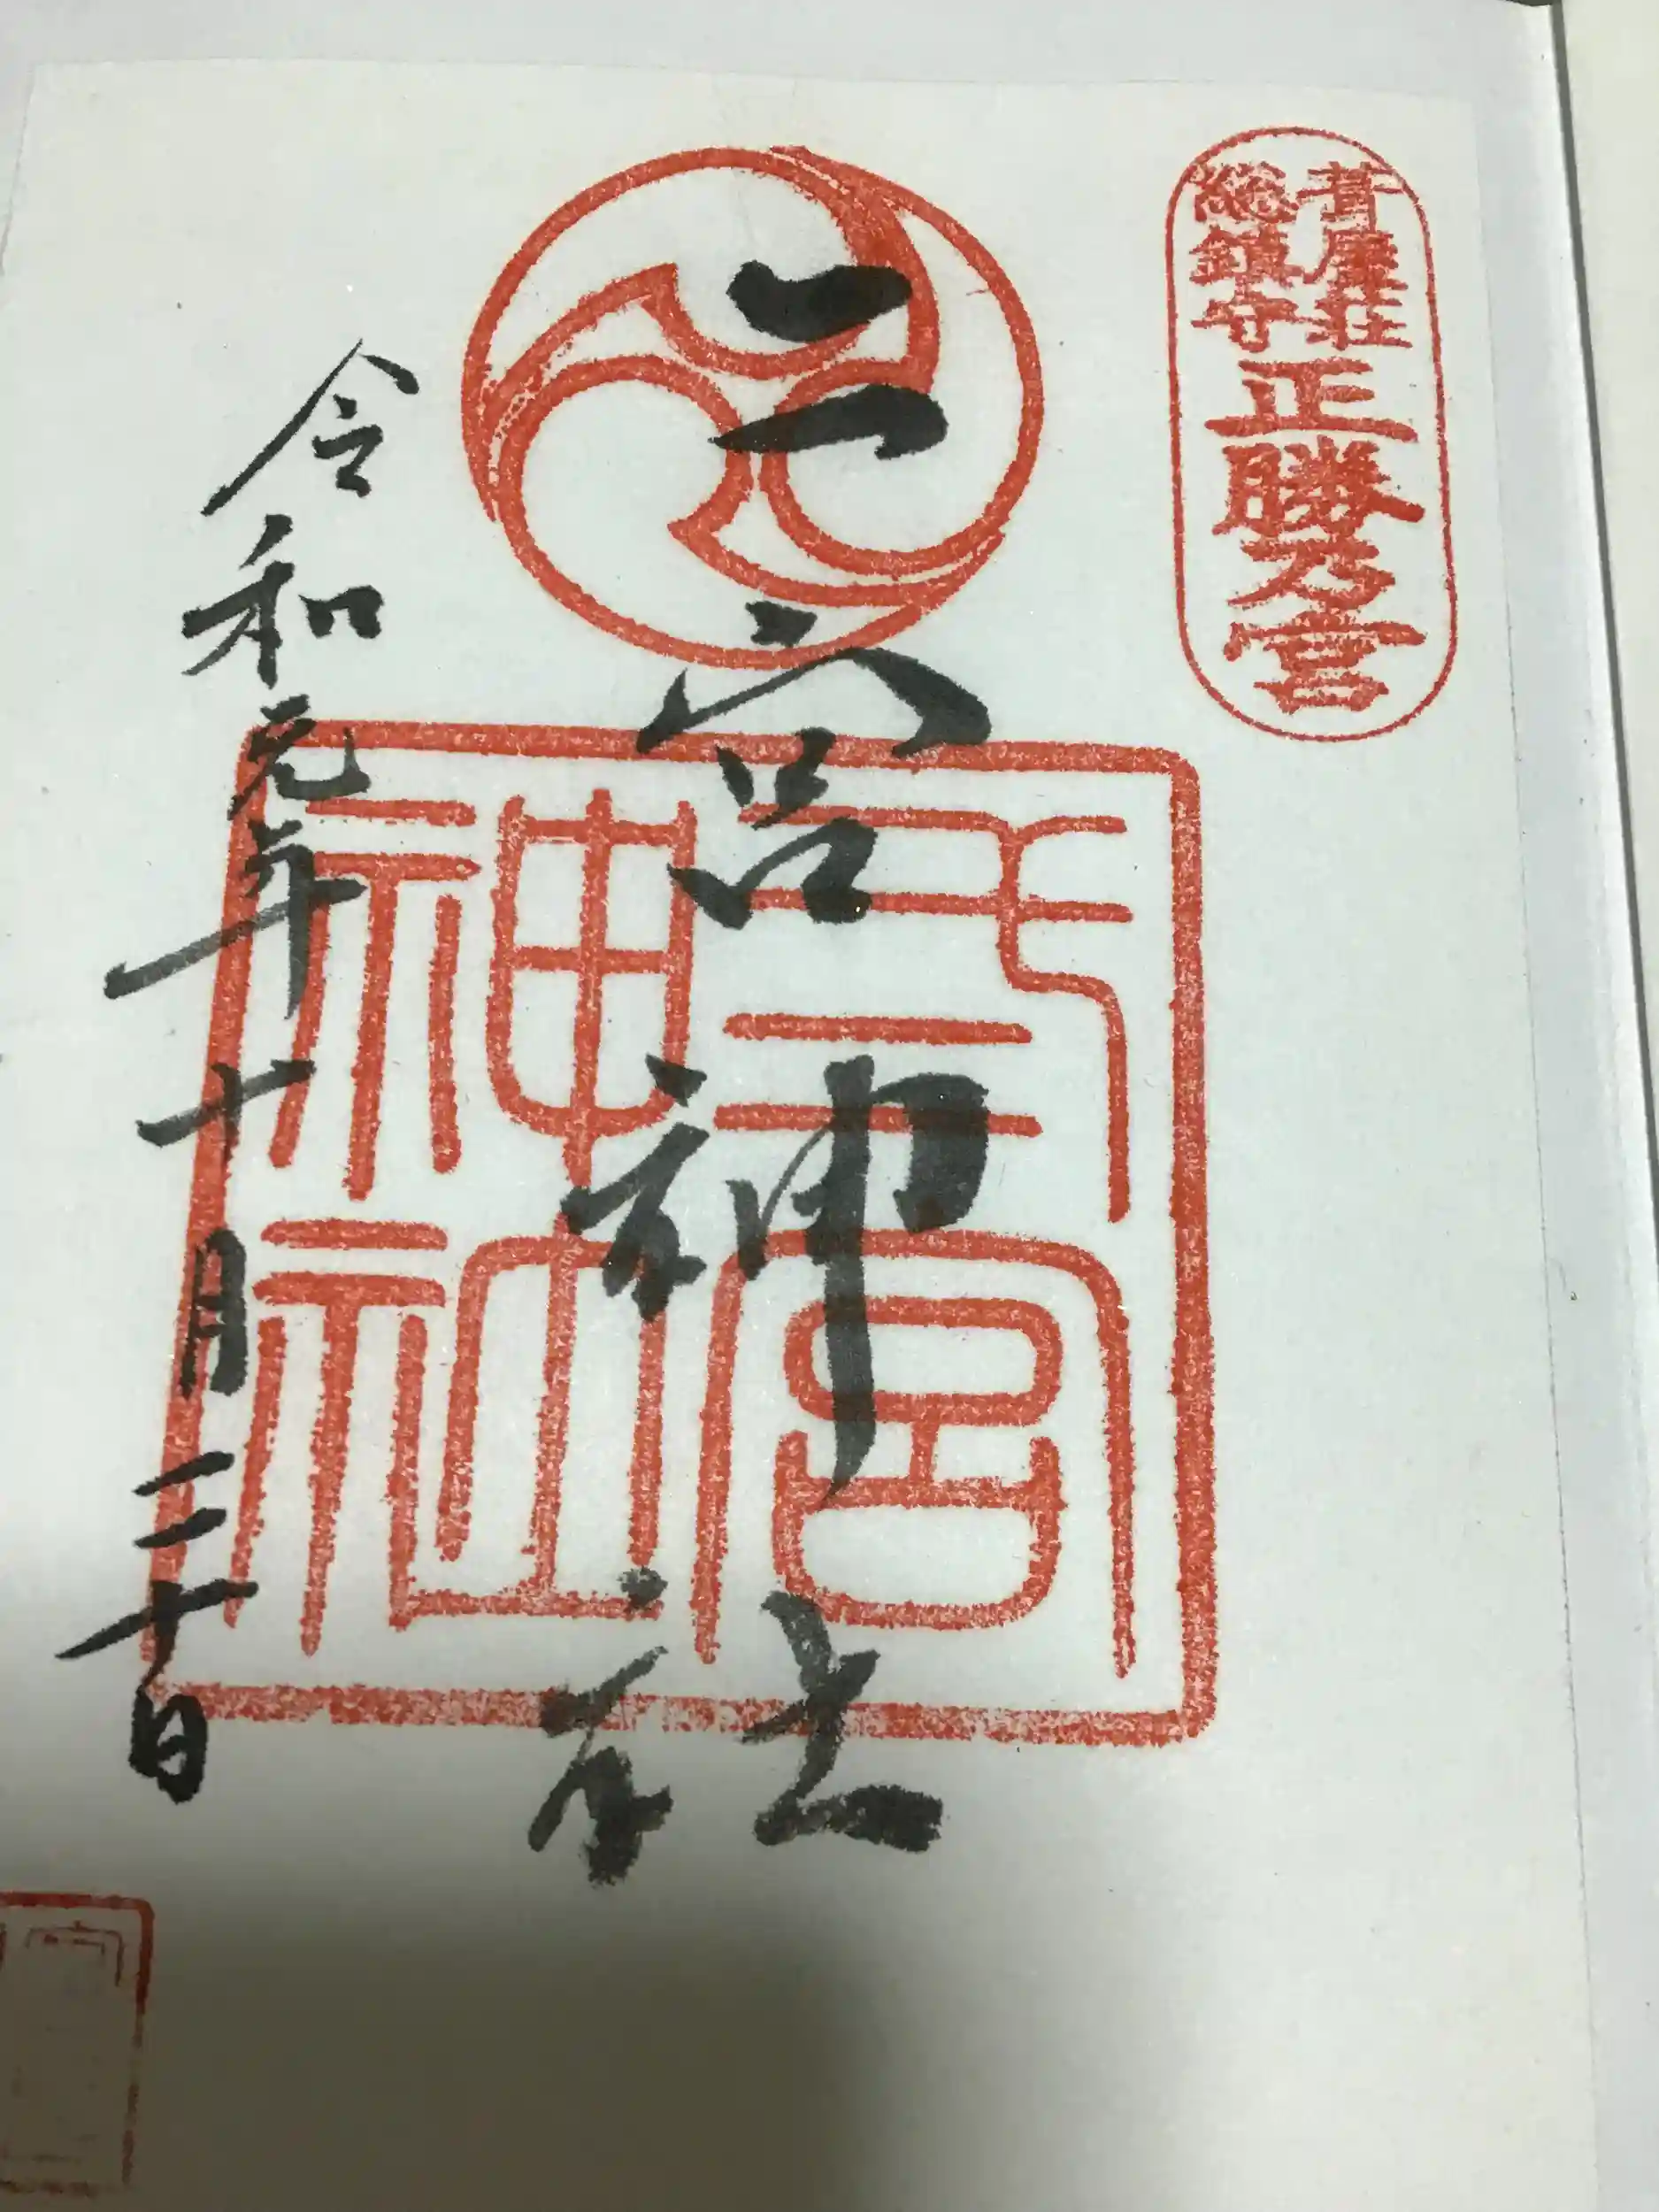 葺屋荘
総鎮守
正勝乃宮
二宮神社
弍宮神社
令和元年十月三十日